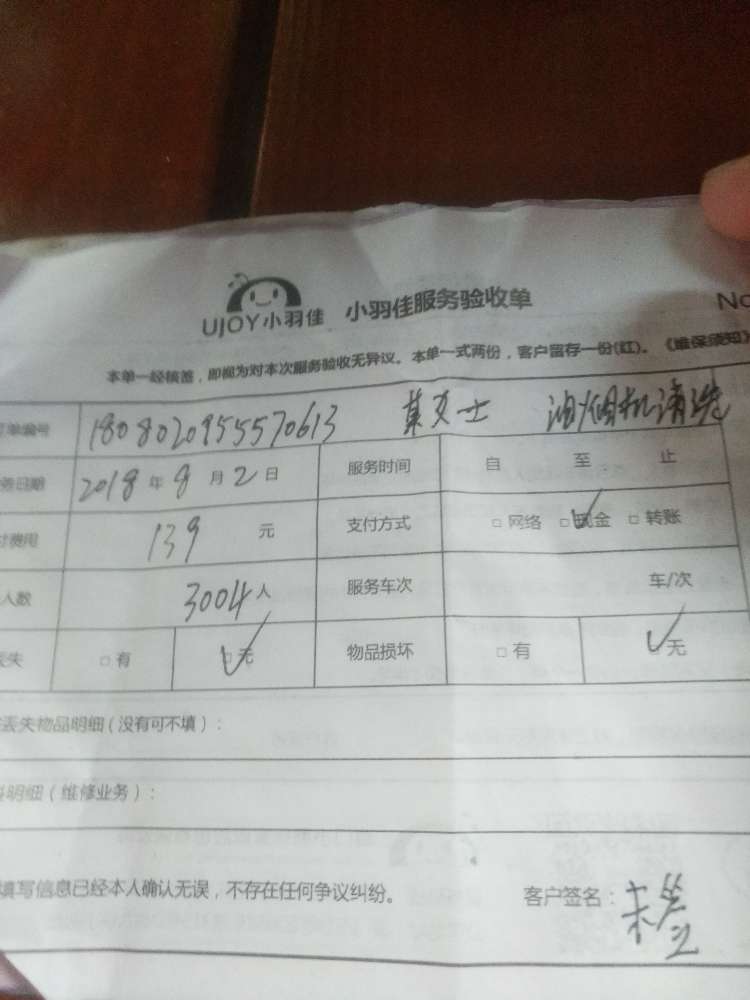 UJOY小羽佳 小羽佳服务验收单 No
本单一经核签，即视为对本次服务验收无异议。本单一式两份，客户留存一份(红)。《维保须知》
单编号 1808020955570613 女士 油烟机清洗
务日期 2018年8月2日 服务时间 自 至 止
费用 139 元 支付方式 □网络 ☑现金 □转账
人数 3004人 服务车次 车/次
丢失 □有 ☑无 物品损坏 □有 ☑无
丢失物品明细（没有可不填）：
明细（维修业务）：
填写信息已经本人确认无误，不存在任何争议纠纷。 客户签名：